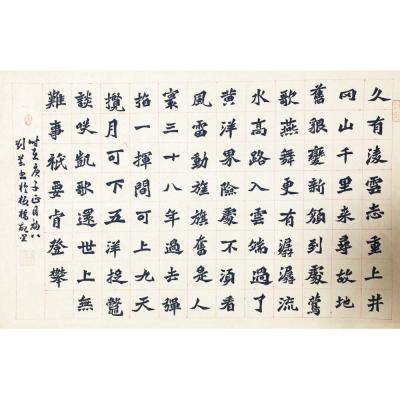 久有淩雲志重上井
冈山千里来尋故地
舊貌變新顔到處鶯
歌燕舞更有潺潺流
水高路入雲端過了
黄洋界險處不須看
風雷動旌旗奮是人
寰三十八年過去彈
指一揮間可上九天
攬月可下五洋捉鱉
談笑凱歌還世上無
難事祇要肯登攀
庚子正月初八
劉